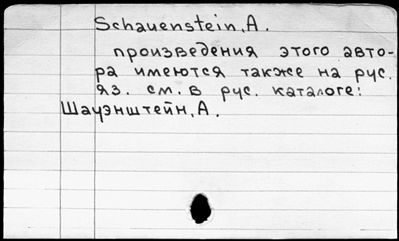 Schauenstein, A.
произведения этого авто-
ра имеются также на рус.
яз. см. в рус. каталоге:
Шауэнштейн, А.